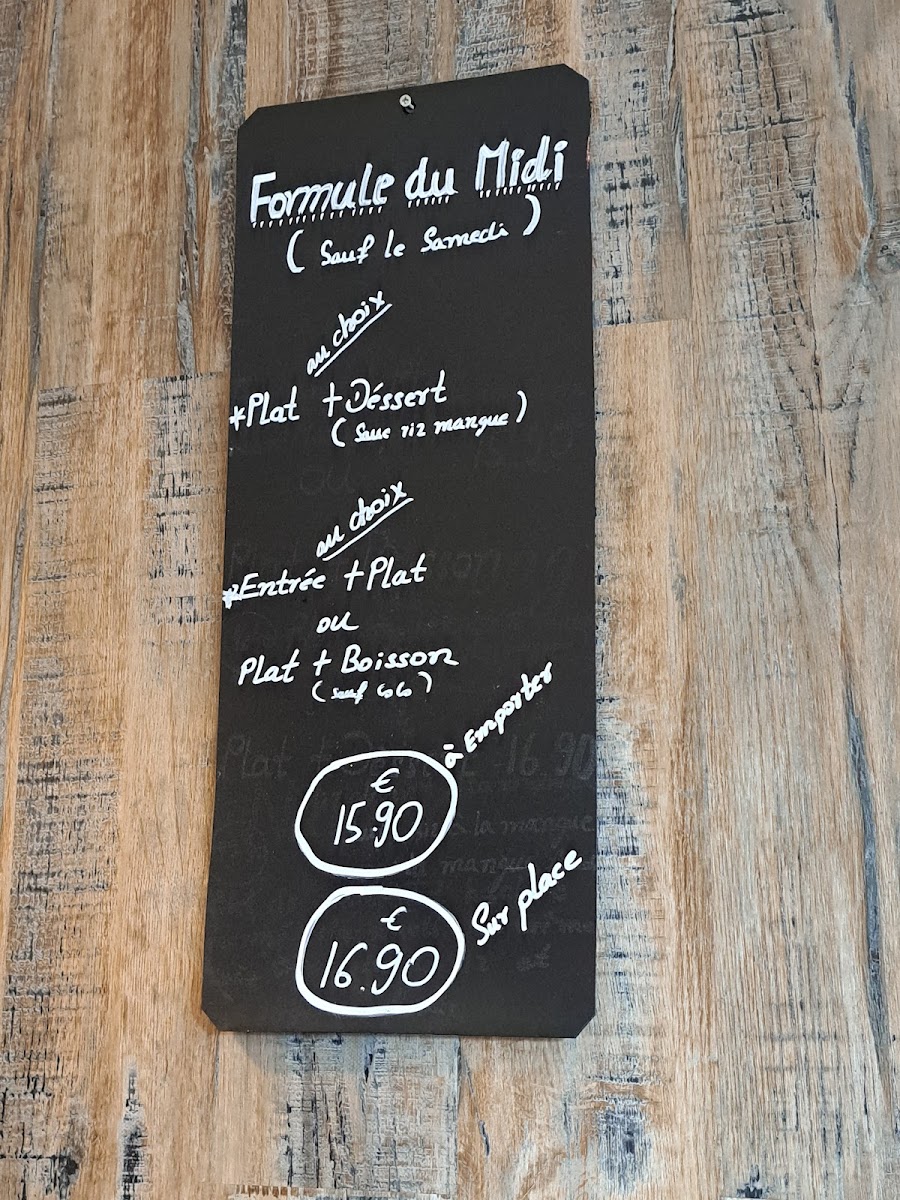 Formule du Midi
(Sauf le Samedi)
au choix
*Plat + Déssert
(Sauf riz mangue)
au choix
*Entrée + Plat
ou
Plat + Boisson
(Sauf CoCo)
à Emporter
€
15.90
Sur place
€
16.90